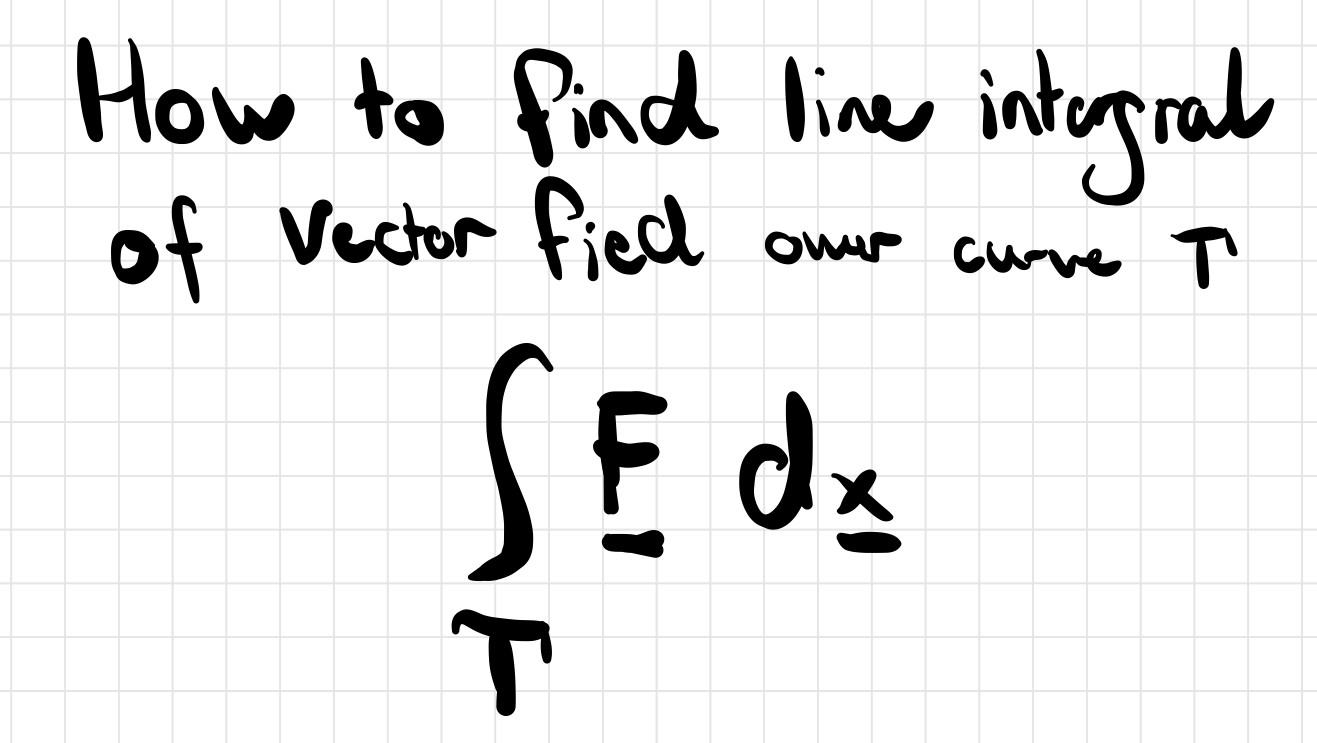 How to find line integral
of vector fied over curve T
∫ F dx
T